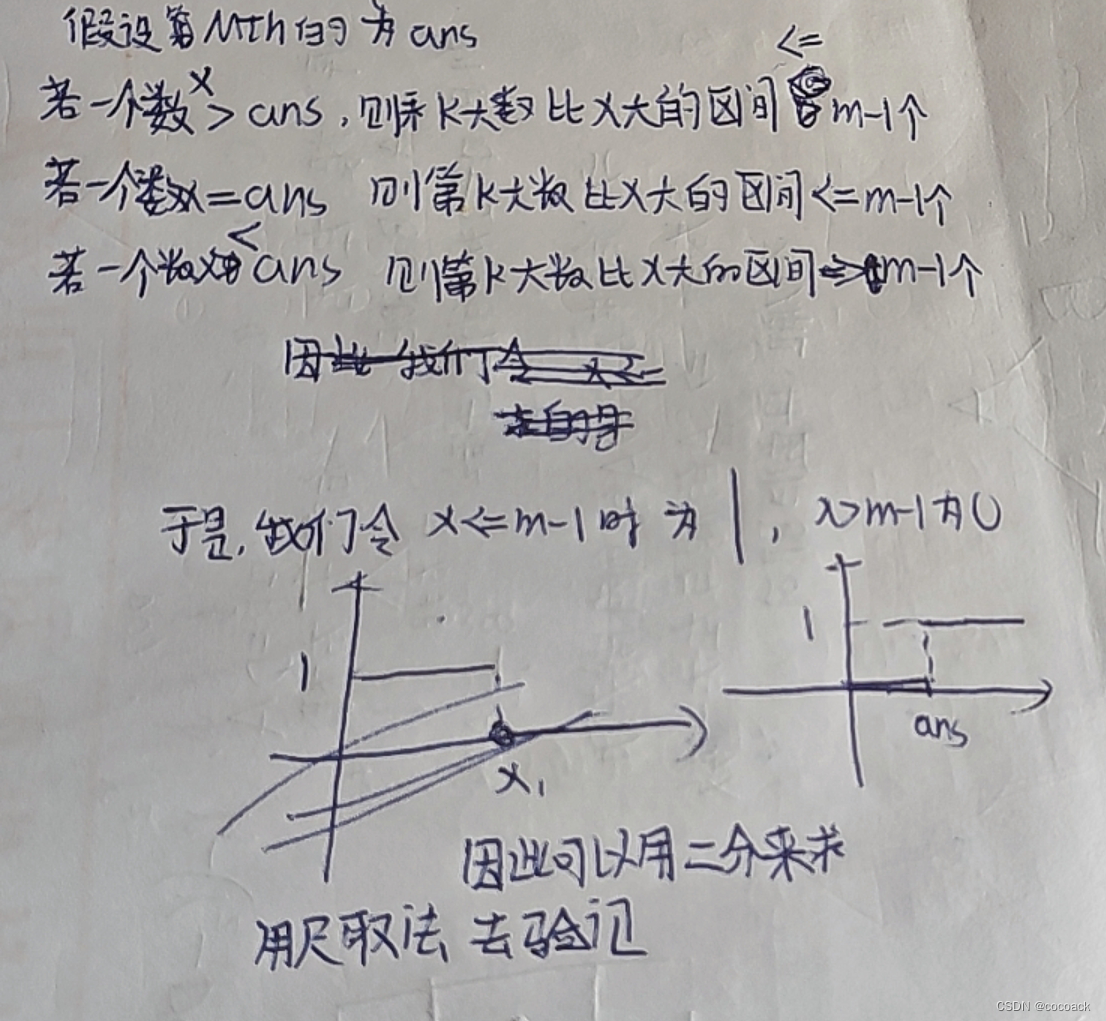 假设第Mth的为ans
<=
若一个数x>ans,则第k大数比x大的区间m-1个
若一个数x=ans 则第k大数比x大的区间<=m-1个
若一个数x<ans 则第k大数比x大的区间>m-1个
因此 我们令
于是,我们令 x<=m-1时 为1, x>m-1为0
1
1
ans
x1
因此可以用二分来求
用尺取法 去验证
CSDN @cocoack